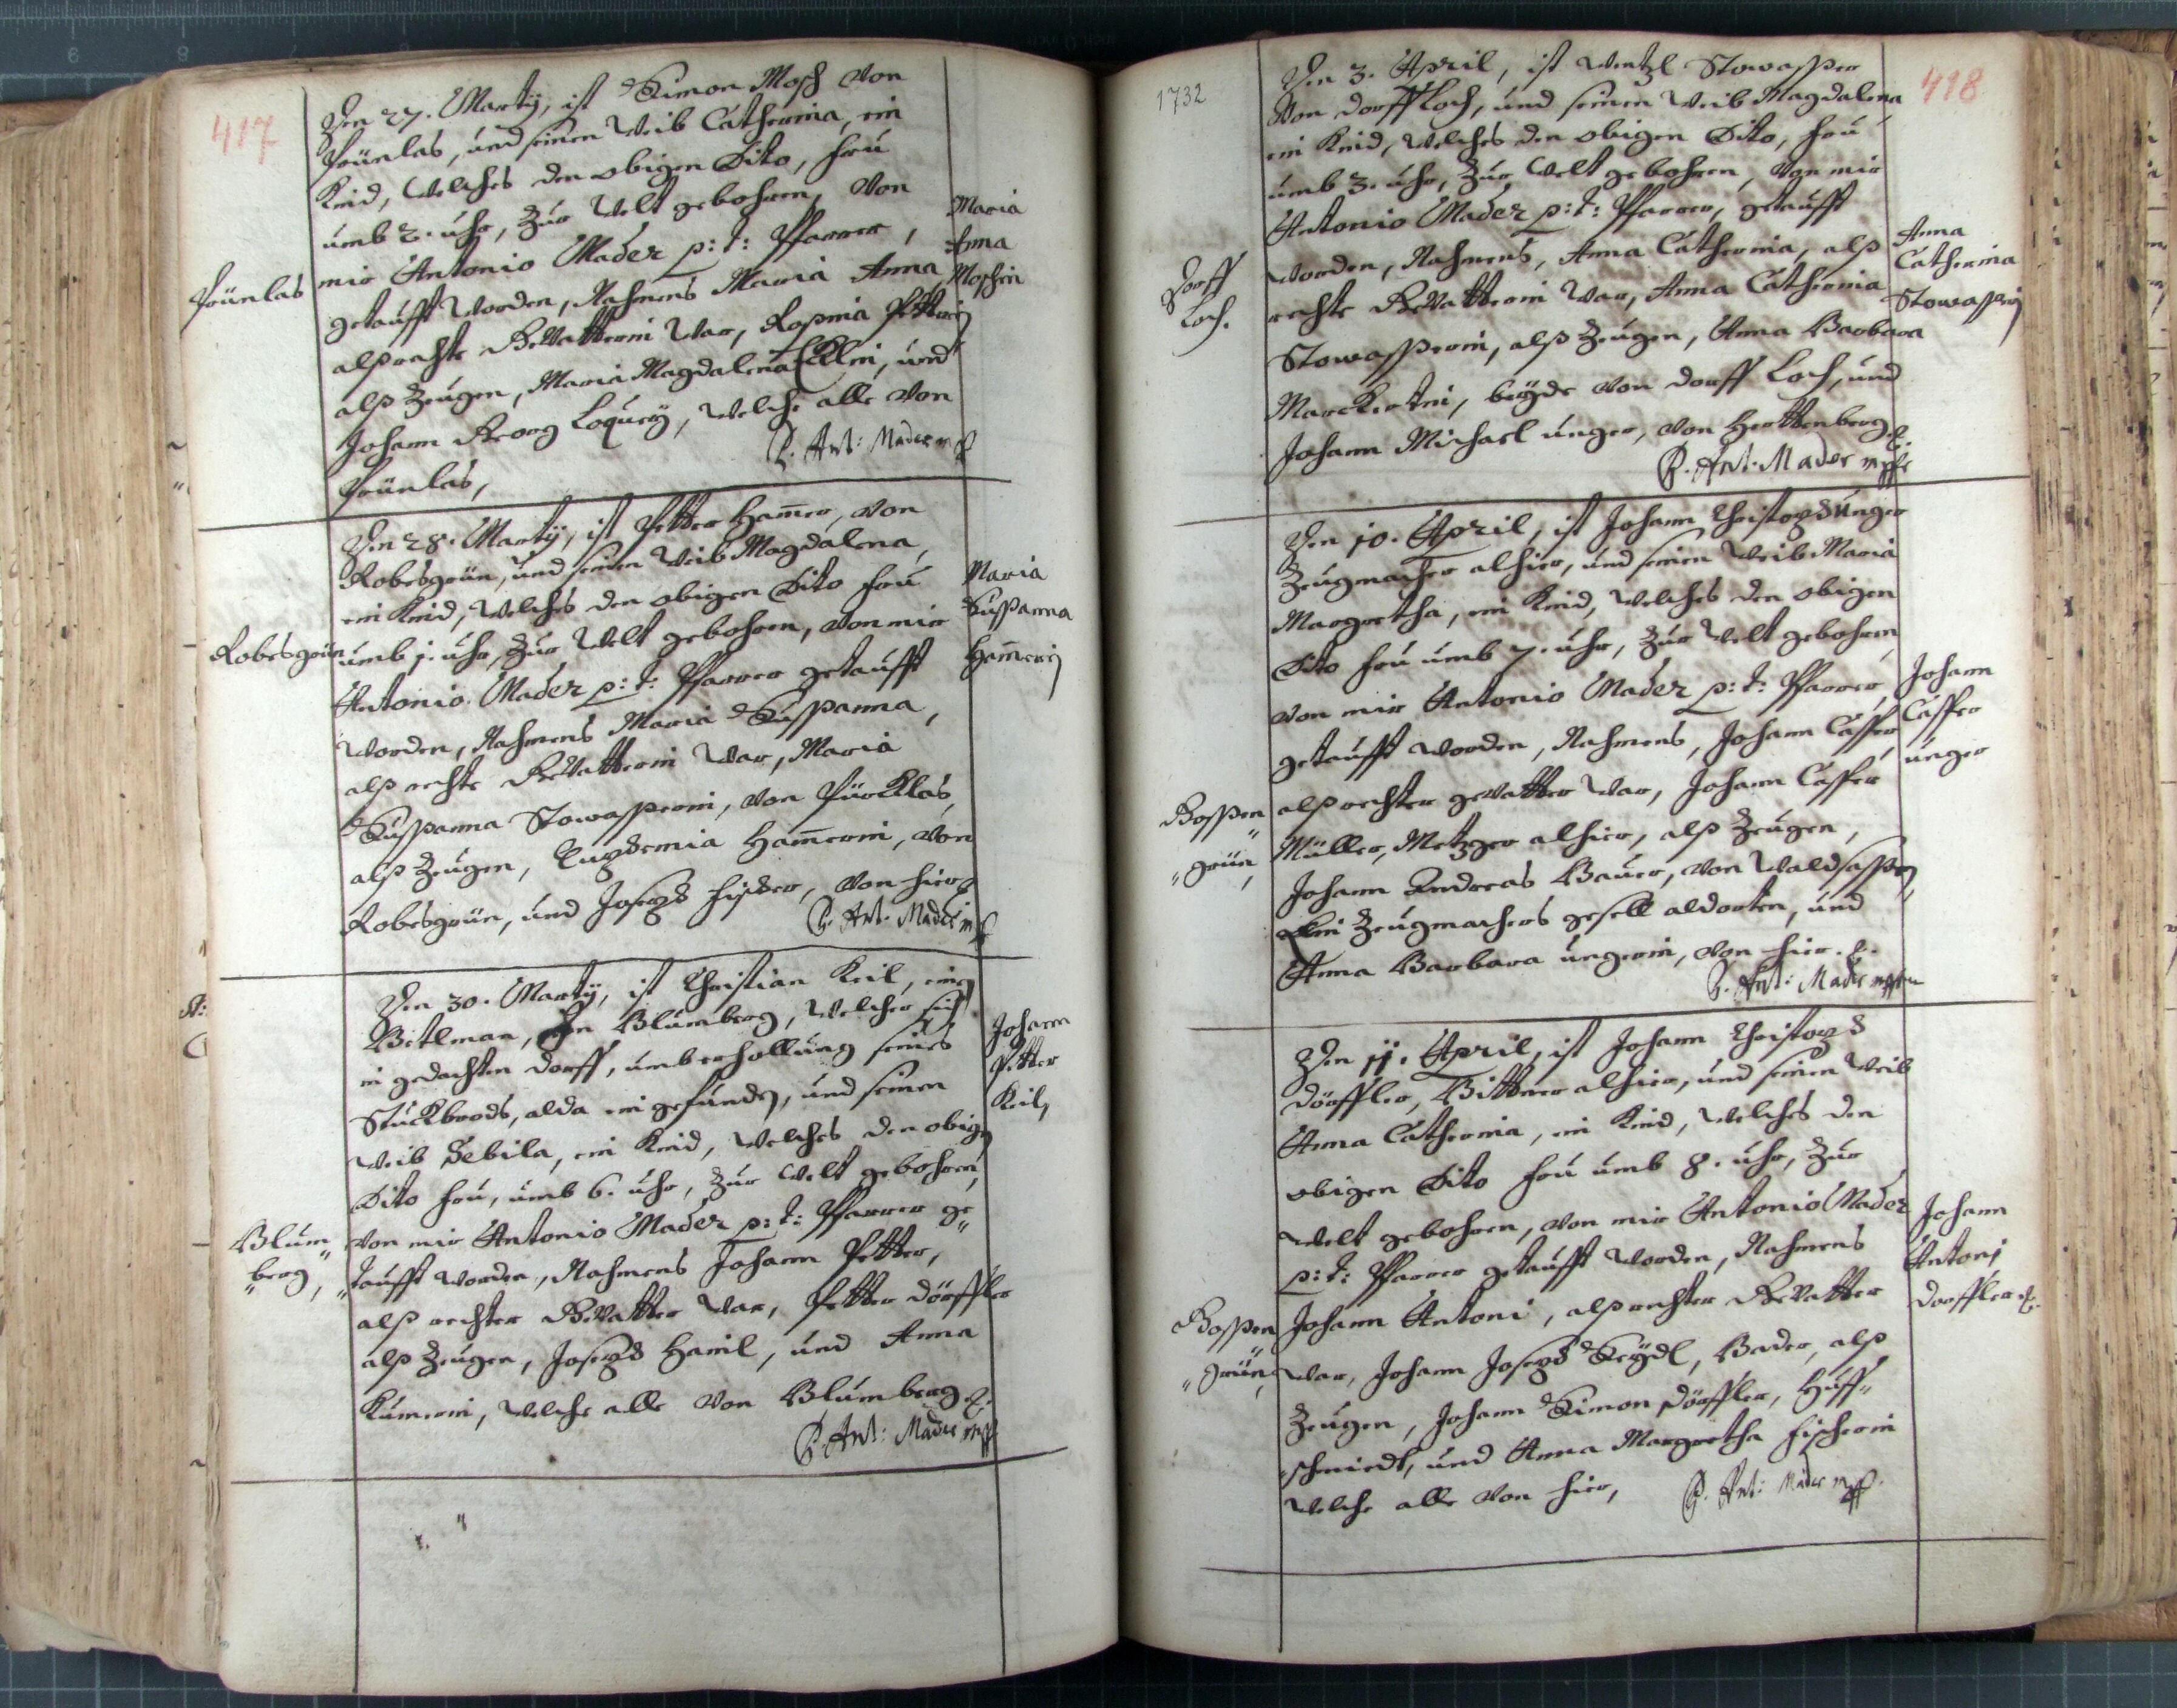 417
Den 27. Martÿ, ist Simon Mosch von
Prünlas, und seinen Weib Catherina, ein
Kind, welches den obigen Dito, fru
umb 2. uhr, zur Welt gebohren, von
mir Antonio Mader p: t: Pfarrer,
getaufft worden, Nahmens Maria Anna
alß rechte Gevatterin war, Rosina
alß Zeugen, Maria Magdalena, und
Johann Georg, welche alle von
Prünlas,
P. Ant: Mader mp
Prünlas
Maria
Anna
Moschin
Den 28. Martÿ, ist Petter Ham̄er, von
Robesgrün, und seinen Weib Magdalena,
ein Kind, welches den obigen Dito fru
umb 1. uhr, zur Welt gebohren, von mir
Antonio Mader p: t: Pfarrer getaufft
worden, Nahmens Maria Sußanna,
alß rechte Gevatterin war, Maria
Sußanna Stowasserin, von Pürcklas,
alß Zeugen, Euphemia Ham̄erin, von
Robesgrün, und Joseph Fischer, von hier
P. Ant. Mader mp
Robesgrün
Maria
Sußanna
Ham̄erin
Den 30. Martÿ, ist Christian Keil, ein
Betlman, von Blumberg, welcher sich
in gedachten Dorff, umb erhollung seines
Stuckbrods, alda eingefunden, und seinen
Weib Sebila, ein Kind, welches den obigen
Dito fru, umb 6. uhr, zur Welt gebohren,
von mir Antonio Mader p: t: Pfarrer ge„
„taufft worden, Nahmens Johann Petter,
alß rechter Gevatter war, Petter Dörffler
alß Zeugen, Joseph Hanil, und Anna
Kumerin, welche alle von Blumberg
P. Ant: Mader mp
Blum„
„berg,
Johann
Petter
Keil,
1732
418
Den 3. April, ist Wentzl Stowasser
von Dorff Loch, und seinen Weib Magdalena
ein Kind, welches den obigen Dito, fru
umb 3. uhr, zur Welt gebohren, von mir
Antonio Mader p: t: Pfarrer, getaufft
worden, Nahmens, Anna Catherina, alß
rechte Gevatterin war, Anna Catherina
Stowasserin, alß Zeugen, Anna Barbara
Marckertin, beÿde von Dorff Loch, und
Johann Michael Unger, von Herttenberg
P. Ant. Mader mp
Dorff
Loch.
Anna
Catherina
Stowasserin
Den 10. April, ist Johann Christoph Unger
Zeugmacher alhier, und seinen Weib Maria
Margretha, ein Kind, welches den obigen
Dito fru umb 7. uhr, zur Welt gebohren,
von mir Antonio Mader p: t: Pfarrer
getaufft worden, Nahmens, Johann Casper
alß rechter gevatter war, Johann Casper
Müller, Metzger alhier, alß Zeugen,
Johann Andreas Bauer, von Waldsassen,
Ein Zeugmachers gesell aldorten, und
Anna Barbara Ungerin, von hier.
P. Ant: Mader
Gossen„
„grün,
Johann
Casper
Unger
Den 11. April, ist Johann Christoph
Dörffler, Bittner alhier, und seinen Weib
Anna Catherina, ein Kind, welches den
obigen Dito fru umb 8. uhr, zur
Welt gebohren, von mir Antonio Mader
p: t: Pfarrer getaufft worden, Nahmens
Johann Antoni, alß rechter Gevatter
war, Johann Joseph Seÿdl, Bader, alß
Zeugen, Johann Simon Dörffler, Huff„
„schmiedt, und Anna Margretha Fischerin
welche alle von hier,
P. Ant: Mader mp.
Gossen„
„grün,
Johann
Antoni
Dörffler